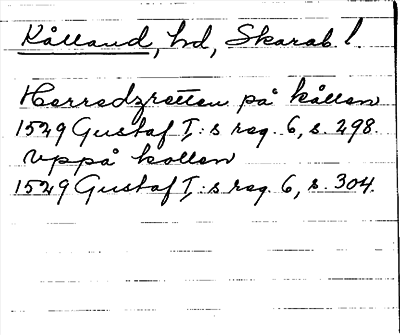 Kålland, hd, Skarab. l.
Herredzretten på kållen
1529 Gustaf I:s reg. 6, s. 298.
uppå kollen
1529 Gustaf I:s reg. 6, s. 304.